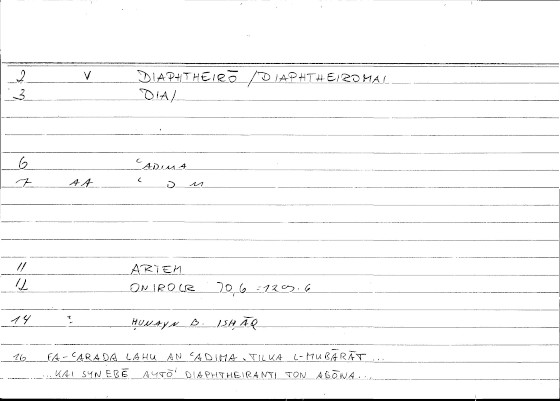 2 V DIAPHTHEIRŌ / DIAPHTHEIROMAI
3 DIA/
6 ʿADIMA
7 AA ʿ D M
11 ARTEM
12 ONIROCR 70,6 = 129.6
14 : ḤUNAYN B. ISḤĀQ
16 FA-ʿARAḌA LAHU AN ʿADIMA TILKA L-MUBĀRĀT ...
... KAI SYNEBĒ AYTŌ DIAPHTHEIRANTI TON AGŌNA ...